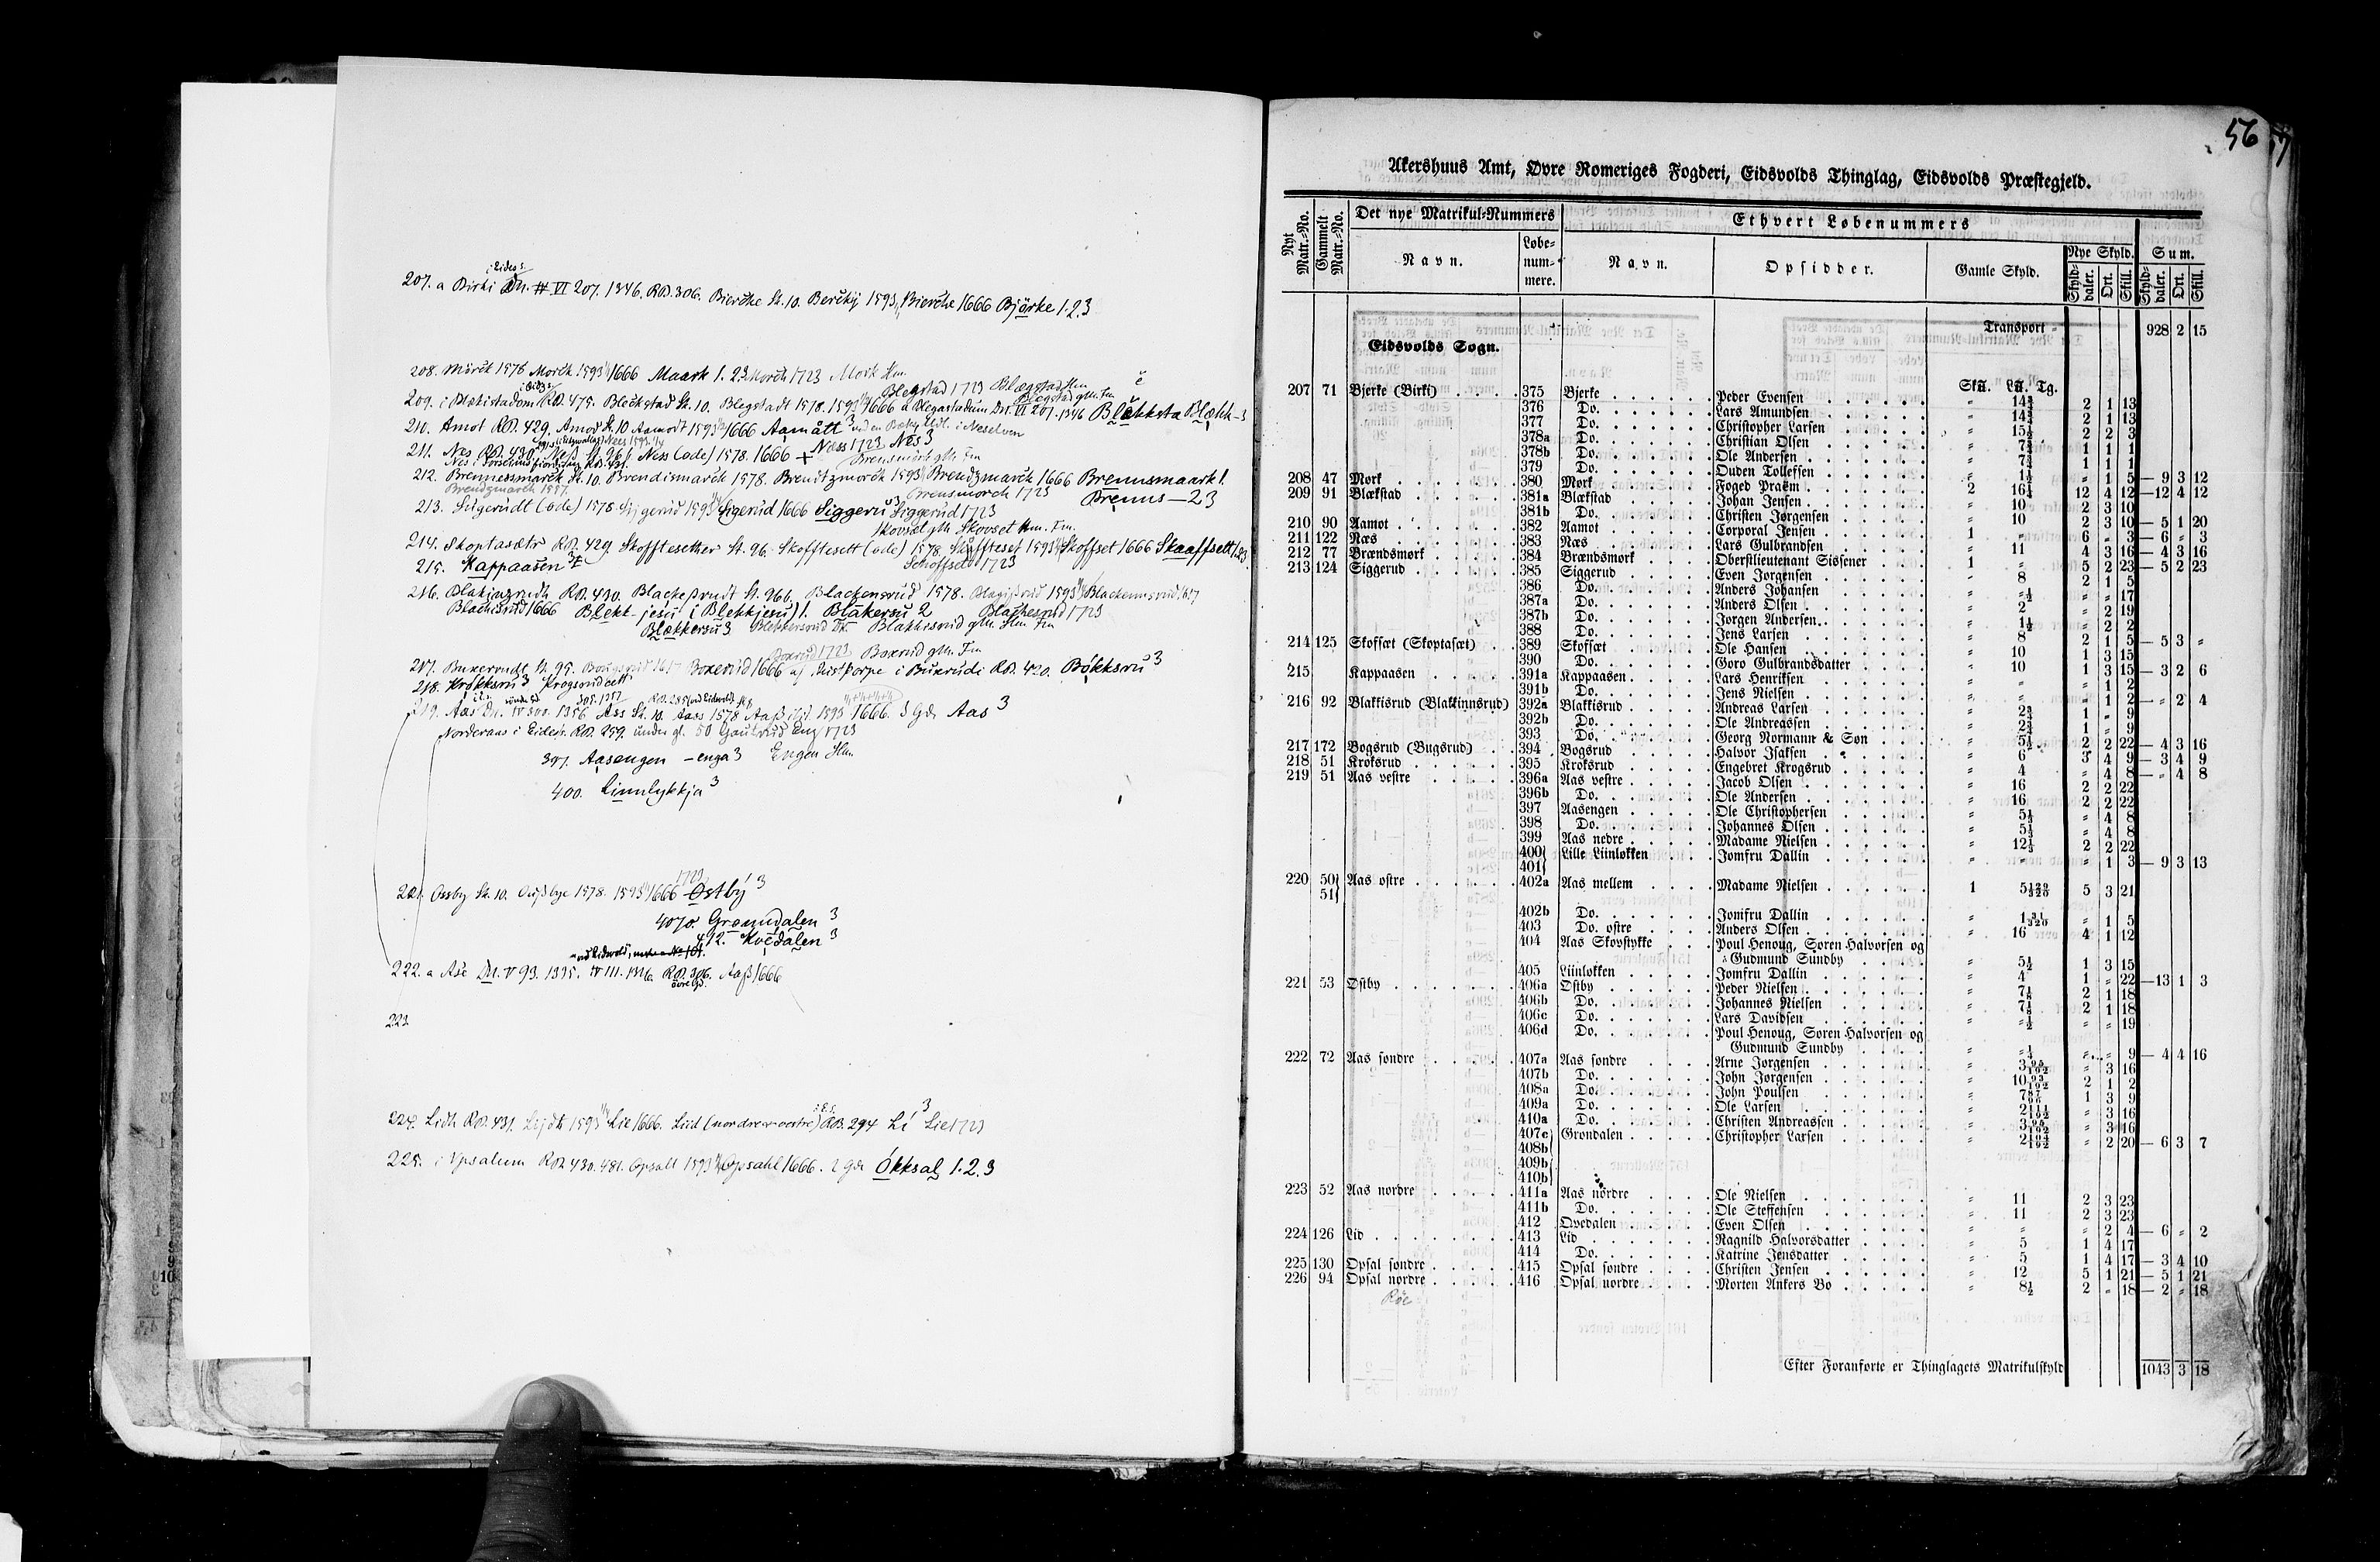 207. a Birki i Eids s. Dn. VI 207. 1346. RB. 306. Biercke St. 10. Bercky 1593 Biercke 1666 Bjørke 1.2.3
208. Mørck 1578 Morck 1593 1666 Maark 1. 2.3 Morch 1723 Mork Hm.
Blegstad 1723 Blegstad Hm
209. i Blækistadom RB. 475. Bleckstad St. 10. Blegstadt 1578. 1593 1666 a Blegastadum Dn. VI 207. 1346 Blækksta Blækk-3
210. Amot RB. 429. Amod St. 10 Aamodt 1593 1666 Aamått 3
211. Nes RB. 430 Ness St. 96 Ness (øde) 1578. 1666 Næss 1723 Nes 3
212. Brennessmarck St. 10. Brendismarck 1578. Brendtzmorck 1593 Brendzmarck 1666 Brennsmaark 1.
Brensmorch 1723 Brenns—23
213. Sigerudt (øde) 1578 Sigerud 1593 Sigerud 1666 Siggeru 3 Siggerud 1723
Skovsæt gM. Skovset Hm. Fm.
214. Skoptasætr RB. 429 Skofftesether St. 96. Skofftesett (øde) 1578. Skoffteset 1593 Skoffset 1666 Skaaffsett 1.2.3.
215. Kappaasen Schoffset 1723
216. Blakinzrudh RB. 430. Blackessrudt St. 96. Blackensrud 1578. 1593 Blackennsrud 1617
Blachsrud 1666 Blekkjesu 1. Blakersu 2 Blachesrud 1723
Blækkersu 3 Blakkisrud gM. Hm Fm
Boxrud 1723. Boxrud gM. Fm
217. Buxerondt St. 95. 1617 Boxerud 1666 i Buxrudi RB. 420. Bøkksru 3
218. Krøkksru 3 Krogsrud
219. Aas Dn. IV 300. 1356 Ass St. 10. Aass 1578 Aass 1593 1666. 3 Gde Aas 3
Norderaas i Eids s. RB. 259. under gl. 50 Eng 1723
397. Aasengen -enga 3 Engen Hm.
400. Linnlykkja 3
221. Ossby St. 10. Oussbye 1578. 1593 1666 1723 Østbý 3
407c. Grønndalen 3
412. Kvedalen 3
222. a Ase Dn. V 93. 1335. IV 111. 1316. RB. 306. Aass 1666
øvre Gd.
223
224. Lidh RB. 431. 1593 Lie 1666. Liid (nordre oc vestre) RB. 294 Lí 3 Lie 1723
225. i Upsalum RB. 430. 481. Opsall 1593 Opsahl 1666. 2 gde Ókksal 1.2.3
56
Akershuus Amt, Øvre Romeriges Fogderi, Eidsvolds Thinglag, Eidsvolds Præstegjeld.
Nyt Matr.-No. Gammelt Matr.-No. Det nye Matrikul-Nummers Ethvert Løbenummers
Navn. Løbe-num-mere. Navn. Opsidder. Gamle Skyld. Nye Skyld. Sum.
Skyld-daler. Ort. Skill. Skyld-daler. Ort. Skill.
Transport 928 2 15
Eidsvolds Sogn.
Sk℔. L℔. Tg.
207 71 Bjerke (Birki) 375 Bjerke Peder Evensen " 14¾ 2 1 13
376 Do. Lars Amundsen " 14¾ 2 1 13
377 Do. Christopher Larsen " 15½ 2 2 3
378a Do. Christian Olsen " 7¾ 1 1 1
378b Do. Ole Andersen " 7¾ 1 1 1
379 Do. Ouden Tollefsen " 1½ " 1 5 — 9 3 12
208 47 Mørk 380 Mørk Foged Praëm 2 16¼ 12 4 12 —12 4 12
209 91 Blækstad 381a Blækstad Johan Jensen " 10 2 3 10
381b Do. Christen Jørgensen " 10 2 3 10 — 5 1 20
210 90 Aamot 382 Aamot Corporal Jensen 1 " 6 " 3 — 6 " 3
211 122 Næs 383 Næs Lars Gulbrandsen " 11 4 3 16 — 4 3 16
212 77 Brændsmørk 384 Brændsmørk Oberstlieutenant Sissener 1 " 5 2 23 — 5 2 23
213 124 Siggerud 385 Siggerud Even Jørgensen " 8 2 1 5
386 Do. Anders Johansen " "½ " " 17
387a Do. Anders Olsen " 2 " 2 19
387b Do. Jørgen Andersen " 1½ " 2 2
388 Do. Jens Larsen " 8 2 1 5 — 5 3 "
214 125 Skofsæt (Skoptasæt) 389 Skofsæt Ole Hansen " 10 1 3 15
390 Do. Goro Gulbrandsdatter " 10 1 3 15 — 3 2 6
215 Kappaasen 391a Kappaasen Lars Henriksen " " " 1 2
391b Do. Jens Nielsen " " " 1 2 — " 2 4
216 92 Blakkisrud (Blakkinnsrud) 392a Blakkisrud Andreas Larsen " 2¾ 1 " 9
392b Do. Ole Andreassen " 2¾ 1 " 9
393 Do. Georg Normann & Søn " 5½ 2 2 22 — 4 3 16
217 172 Bogsrud (Bugsrud) 394 Bogsrud Halvor Isaksen " 6 3 4 9 — 3 4 9
218 51 Kroksrud 395 Kroksrud Engebret Krogsrud " 4 " 4 8 — " 4 8
219 51 Aas vestre 396a Aas vestre Jacob Olsen " 16 2 2 22
396b Do. Ole Andersen " 16 2 2 22
397 Aasengen Ole Christophersen " 5⅓ " 4 8
398 Do. Johannes Olsen " 5⅓ " 4 8
399 Aas nedre Madame Nielsen " 12⅓ 2 2 22
400 Lille Liinløkken Jomfru Dallin " " " 1 3 — 9 3 13
401
220 50 Aas østre 402a Aas mellem Madame Nielsen 1 5 129/320 5 3 21
51
402b Do. Jomfru Dallin " 1 31/320 " 1 5
403 Do. østre Anders Olsen " 16 4 1 12
404 Aas Skovstykke Poul Henoug, Søren Halvorsen og
Gudmund Sundby " 5½ 1 3 15
405 Liinløkken Jomfru Dallin " 4 1 " 22 —13 1 3
221 53 Østby 406a Østby Peder Nielsen " 7⅛ 2 1 18
406b Do. Johannes Nielsen " 7⅛ 2 1 18
406c Do. Lars Davidsen " "½ " " 19
406d Do. Poul Henoug, Søren Halvorsen og
Gudmund Sundby " "¼ " " 9 — 4 4 16
222 72 Aas søndre 407a Aas søndre Arne Jørgensen " 3 95/192 " 3 16
407b Do. John Jørgensen " 10 93/192 2 1 2
408a Do. John Poulsen " 7 87/96 1 3 9
409a Do. Ole Larsen " 2 111/192 " 3 16
410a Do. Christen Andreassen " 3 95/192 " 3 16
407c Grøndalen Christopher Larsen " 2 104/192 " 2 20 — 6 3 7
408b
409b
410b
223 52 Aas nordre 411a Aas nordre Ole Nielsen " 11 2 3 23
411b Do. Ole Steffensen " 11 2 3 23
412 Qvedalen Even Olsen " " " 2 4 — 6 " 2
224 126 Lid 413 Lid Ragnild Halvorsdatter " 5 1 4 17
414 Do. Katrine Jensdatter " 5 1 4 17 — 3 4 10
225 130 Opsal søndre 415 Opsal søndre Christen Jensen " 12 5 1 21 — 5 1 21
226 94 Opsal nordre 416 Opsal nordre Morten Ankers Bo " 8½ 2 " 18 — 2 " 18
Røe
Efter Foranførte er Thinglagets Matrikulskyld 1043 3 18